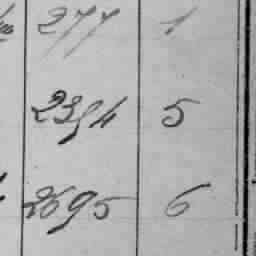 277 1
2354 5
2695 6